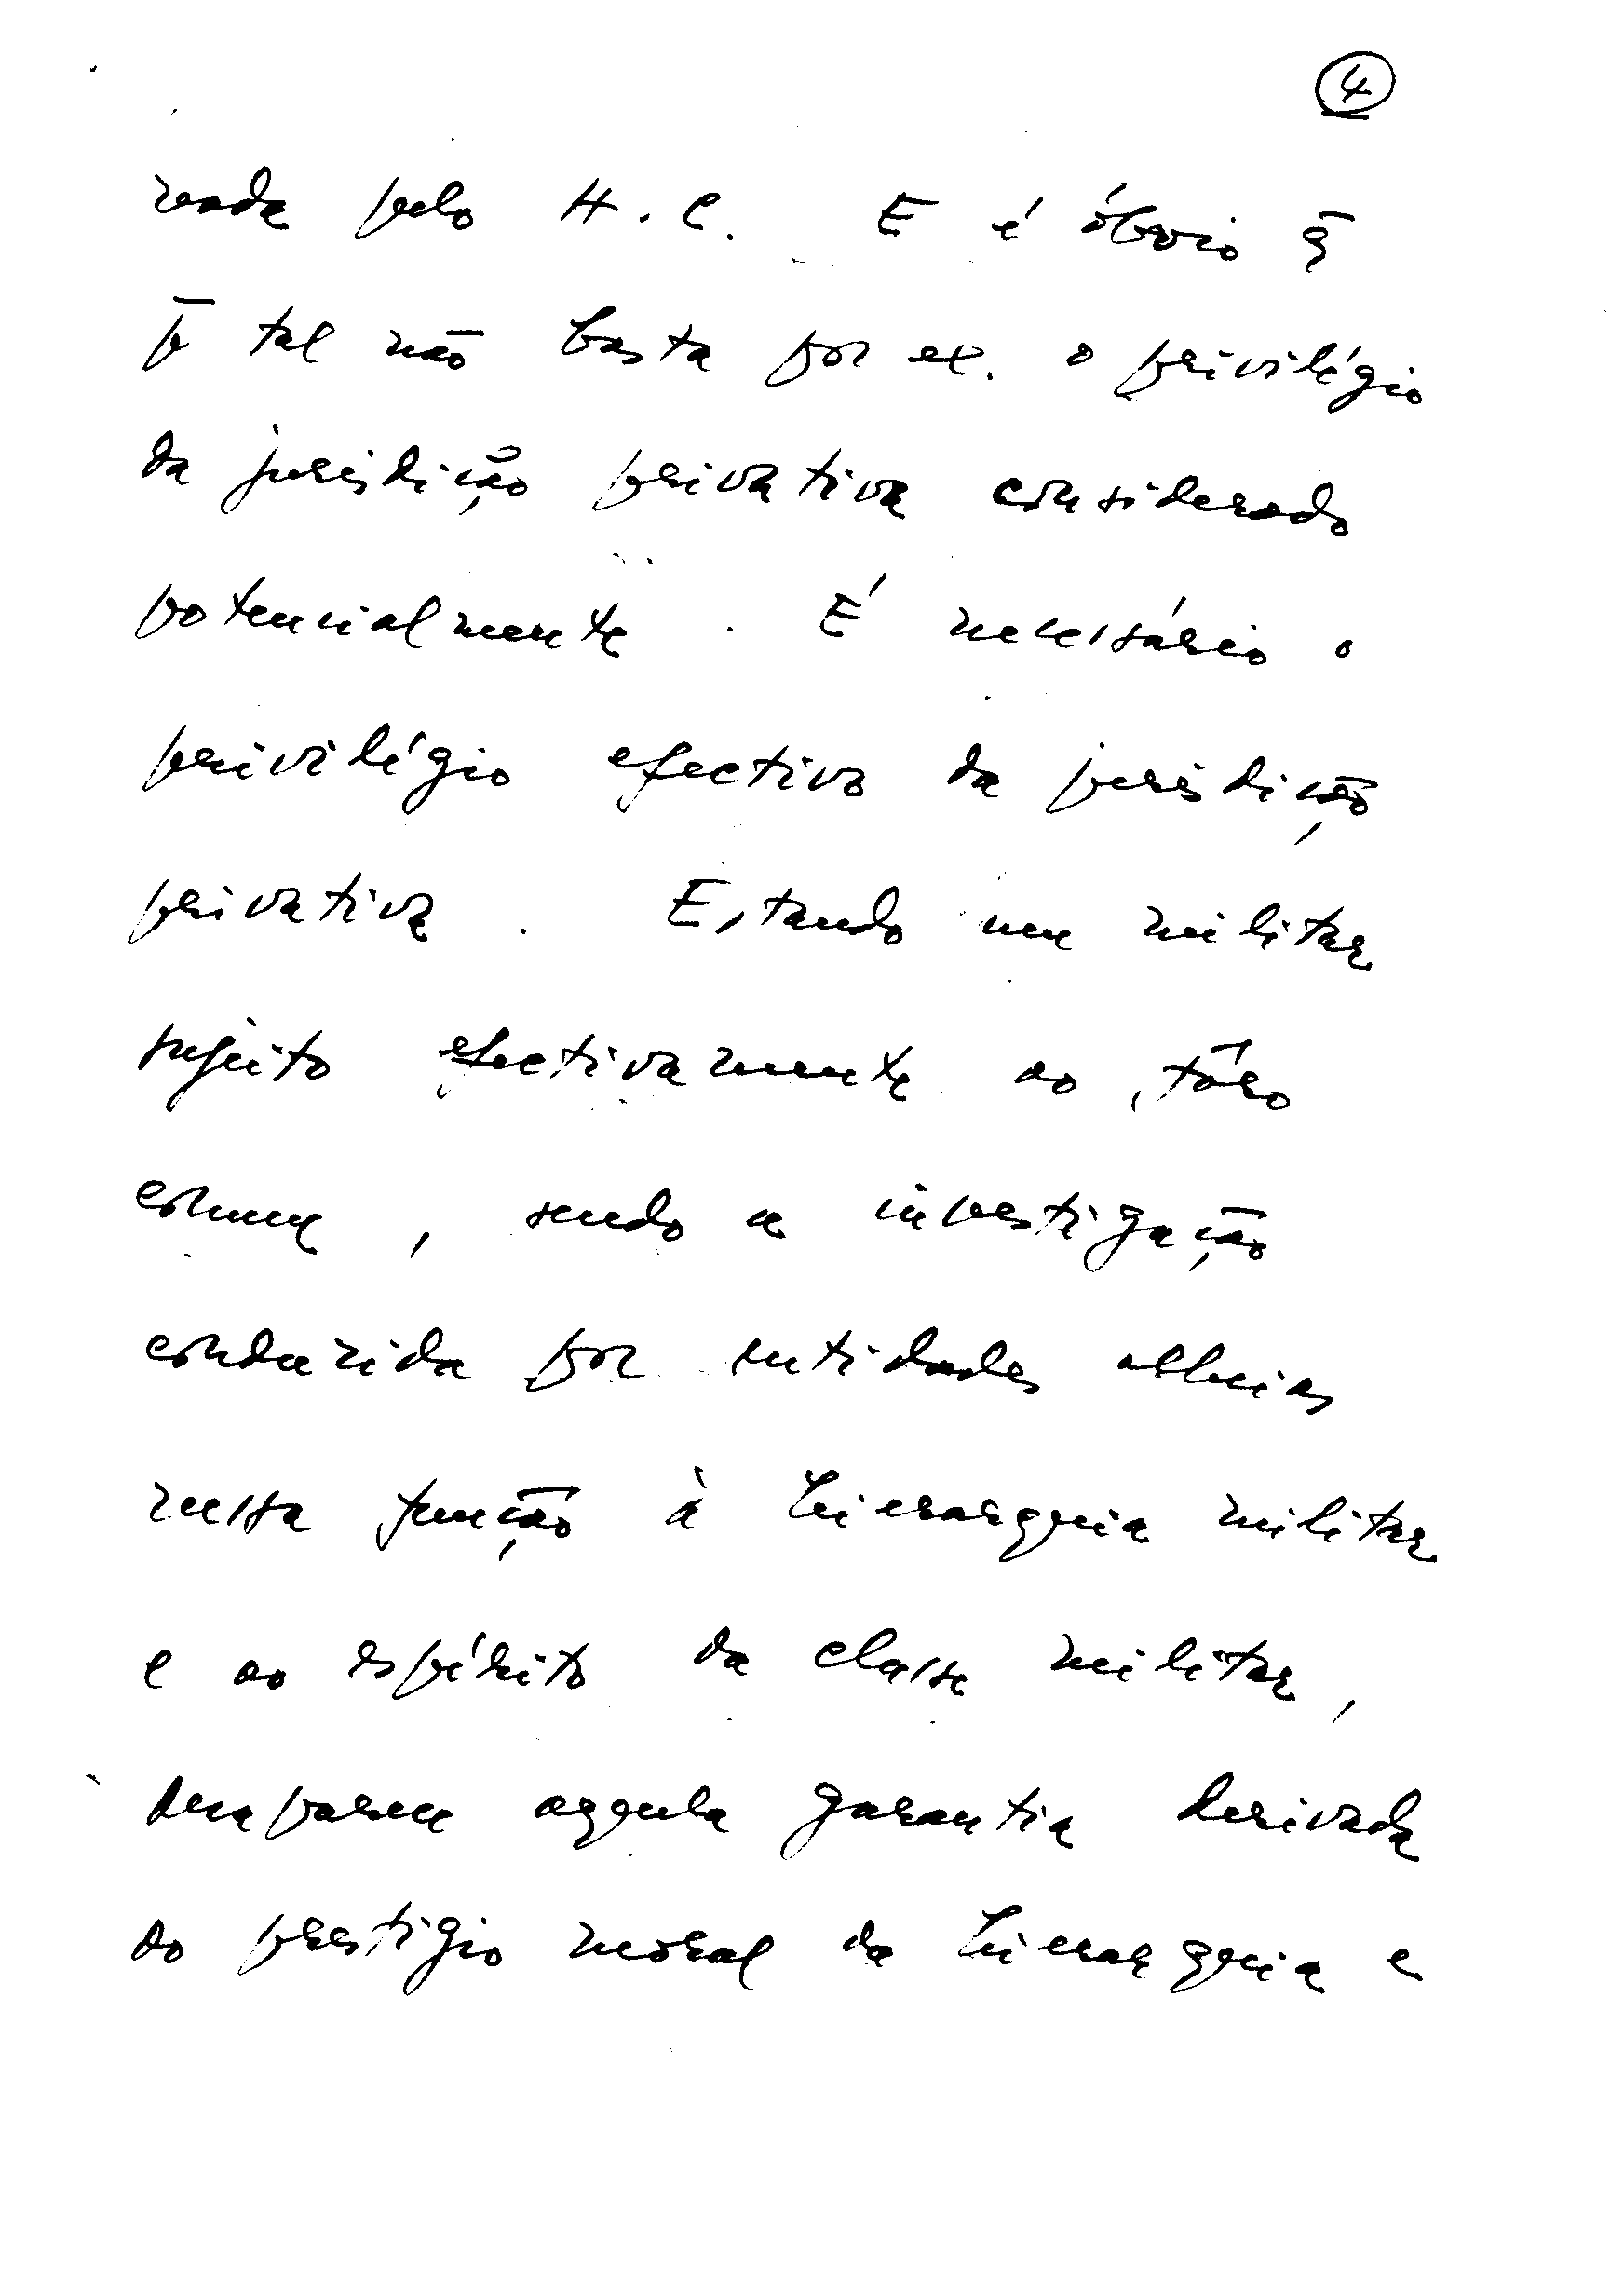 4
rada pelo H. C. E é óbvio q̄
p̄ tal não basta por ex. o privilégio
da jurisdição privativa considerado
potencialmente. É necessário o
privilégio efectivo da jurisdição
privativa. Estando um militar
sujeito efectivamente ao fôro
comum, sendo a investigação
conduzida por entidades alheias
nessa função à hierarquia militar
e ao espírito da classe militar,
desaparece aquela garantia derivada
do prestígio moral da hierarquia e